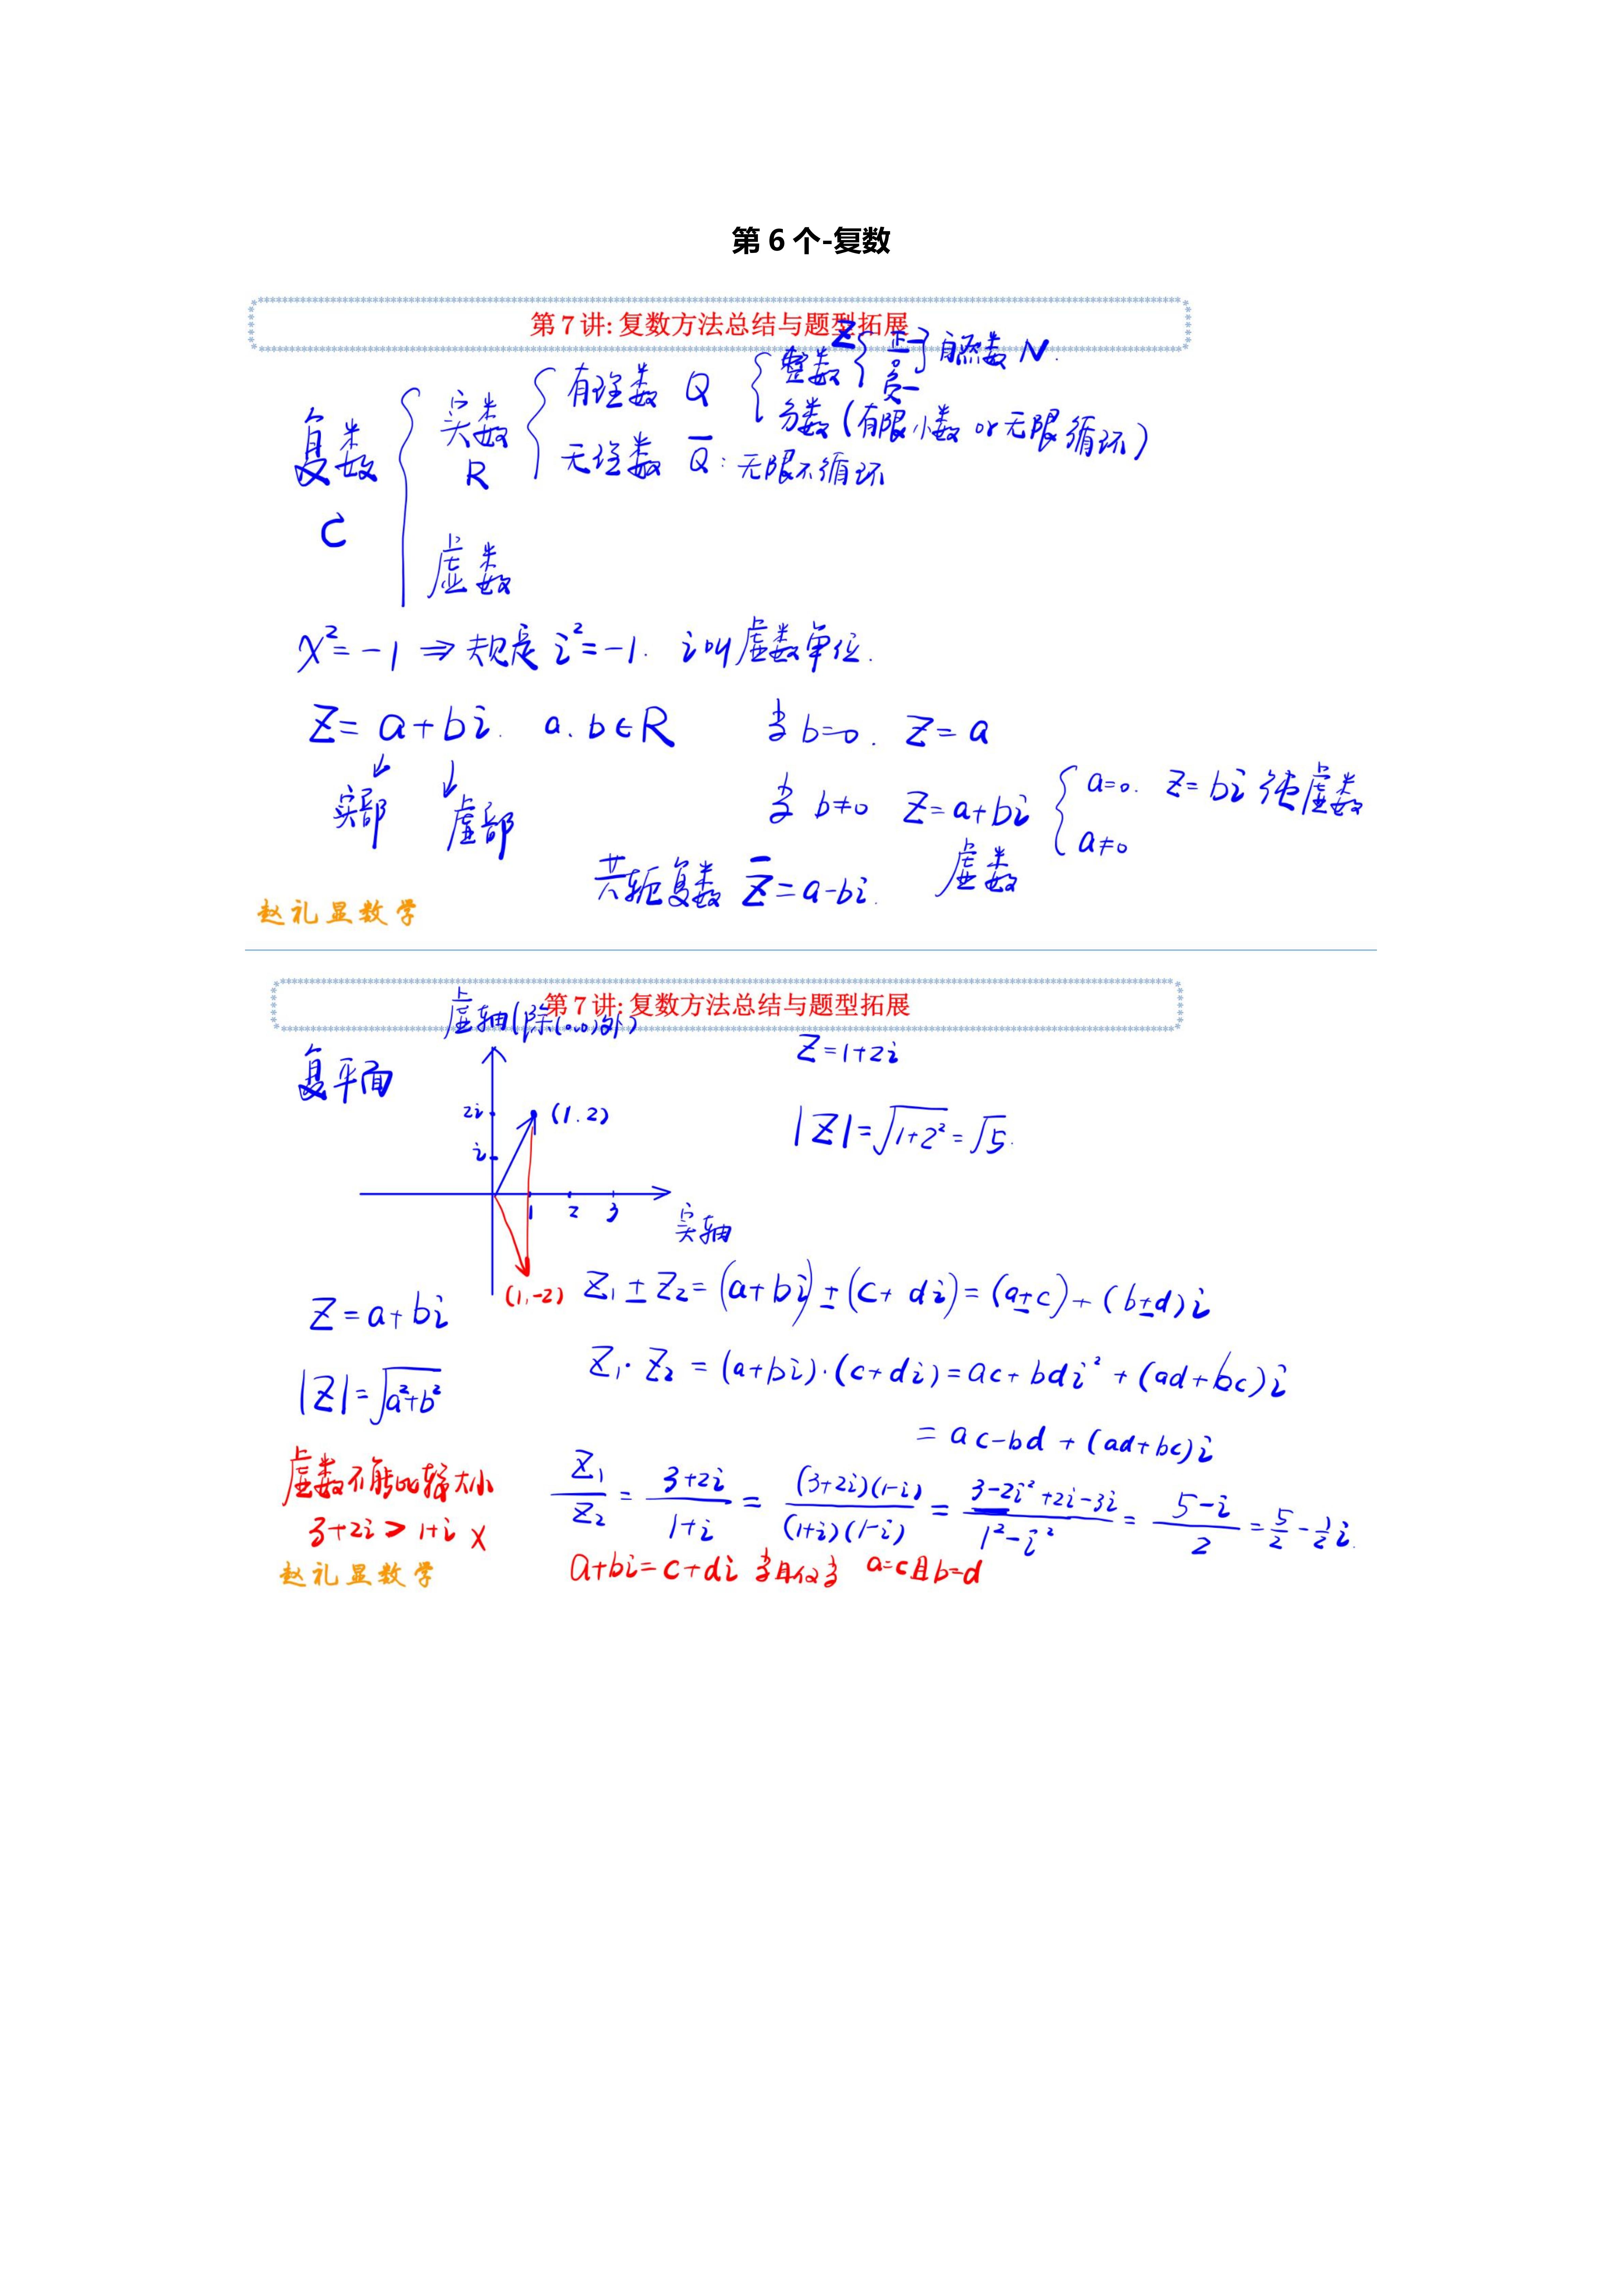 第 6 个-复数
第 7 讲: 复数方法总结与题型拓展
复数 C
实数 R
有理数 Q
整数 Z
正
0
负
自然数 N.
分数 (有限小数 or 无限循环)
无理数 Q̄ : 无限不循环
虚数
x² = -1 ⇒ 规定 i² = -1. i叫虚数单位.
Z = a + bi. a. b ∈ R 当 b=0. Z = a
实部 虚部
当 b≠0 Z = a+bi 虚数
a=0. Z = bi 纯虚数
a≠0
共轭复数 Z̄ = a-bi.
赵礼显数学
第 7 讲: 复数方法总结与题型拓展
虚轴(除(0.0)外)
复平面
Z = 1+2i
2i (1.2)
|Z| = √(1+2²) = √5.
i
1 2 3
实轴
(1,-2)
Z₁ ± Z₂ = (a+bi) ± (c+di) = (a±c) + (b±d)i
Z = a+bi
Z₁· Z₂ = (a+bi)·(c+di) = ac+bdi² + (ad+bc)i
|Z| = √(a²+b²)
= ac-bd + (ad+bc)i
虚数不能比较大小
3+2i > 1+i ×
Z₁/Z₂ = (3+2i)/(1+i) = (3+2i)(1-i)/(1+i)(1-i) = (3-2i²+2i-3i)/(1²-i²) = (5-i)/2 = 5/2 - 1/2 i.
a+bi = c+di 当且仅当 a=c且b=d
赵礼显数学